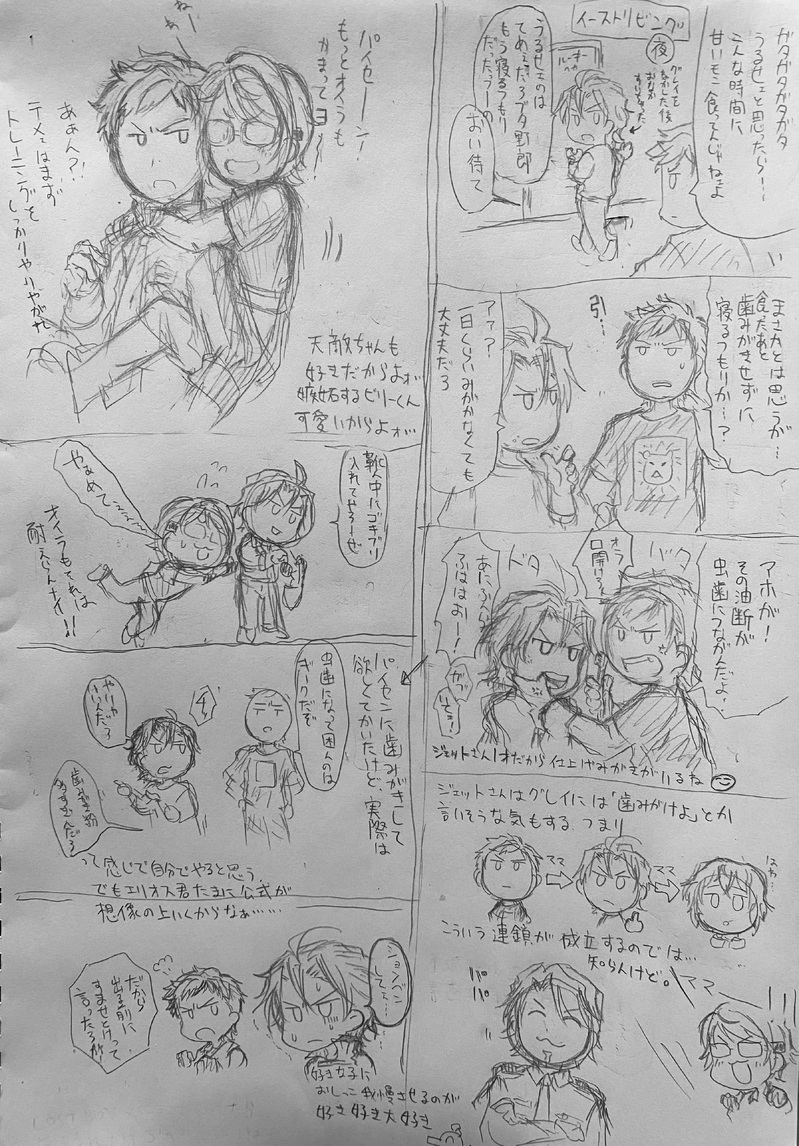 イーストリビング
夜
グレイを
なかした後
おなか
すいちゃった
ガタガタガタガタ
うるせェと思ったら…
こんな時間に
甘いもン食ってんじゃねェよ
うるせェのは
てめェだろブタ野郎
もう寝るつもり
だったっつーの
おい待て
まさかとは思うが…
食ったあと
歯みがきせずに
寝るつもりか…?
引…
ア?
一日くらいみがかなくても
大丈夫だろ
アホが!
その油断が
虫歯につながんだよ!
バタ
ドタ
オラ
口開けろ
ふはほー!
ジェットさん1才だから仕上げみがきがいるな
ジェットさんはグレイには「歯みがけよ」とか
言いそうな気もする つまり
ママ
ママ
はわ…
こういう連鎖が成立するのでは…
知らんけど。
ママ
パパ
パイセーン!
もっとオイラも
かまってヨ
ねー
ねー
あぁん?!
テメェはまず
トレーニングを
しっかりやりやがれ
天敵ちゃんも
好きだからよォ
嫉妬するビリーくん
可愛いからよォ
靴ん中にゴキブリ
入れてやろーぜ
やぁめて
オイラもそれは
耐えらんナイ!!
パイセンに歯みがきして
欲しくてかいたけど、実際は
虫歯になって困んのは
ギークだぞ
チッ
やりゃ
いいんだろ
歯みがき粉
って感じで自分でやると思う
でもエリオス君たまに公式が
想像の上いくからなぁ……
ションベン
してェ…
だから
出る前に
すませとけって
言ったろが
好きな子に
おしっこ我慢させるのが
好き好き大好き